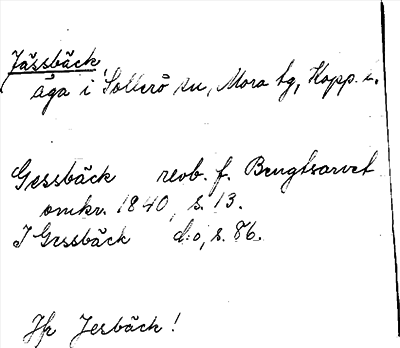 Jässbäck,
åga i Sollerö sn, Mora tg, Kopp. l.
Gessbäck revb. f. Bengtsarvet
omkr. 1840, s. 13.
I Gessbäck d:o, s. 86.
Jfr Jesbäck!